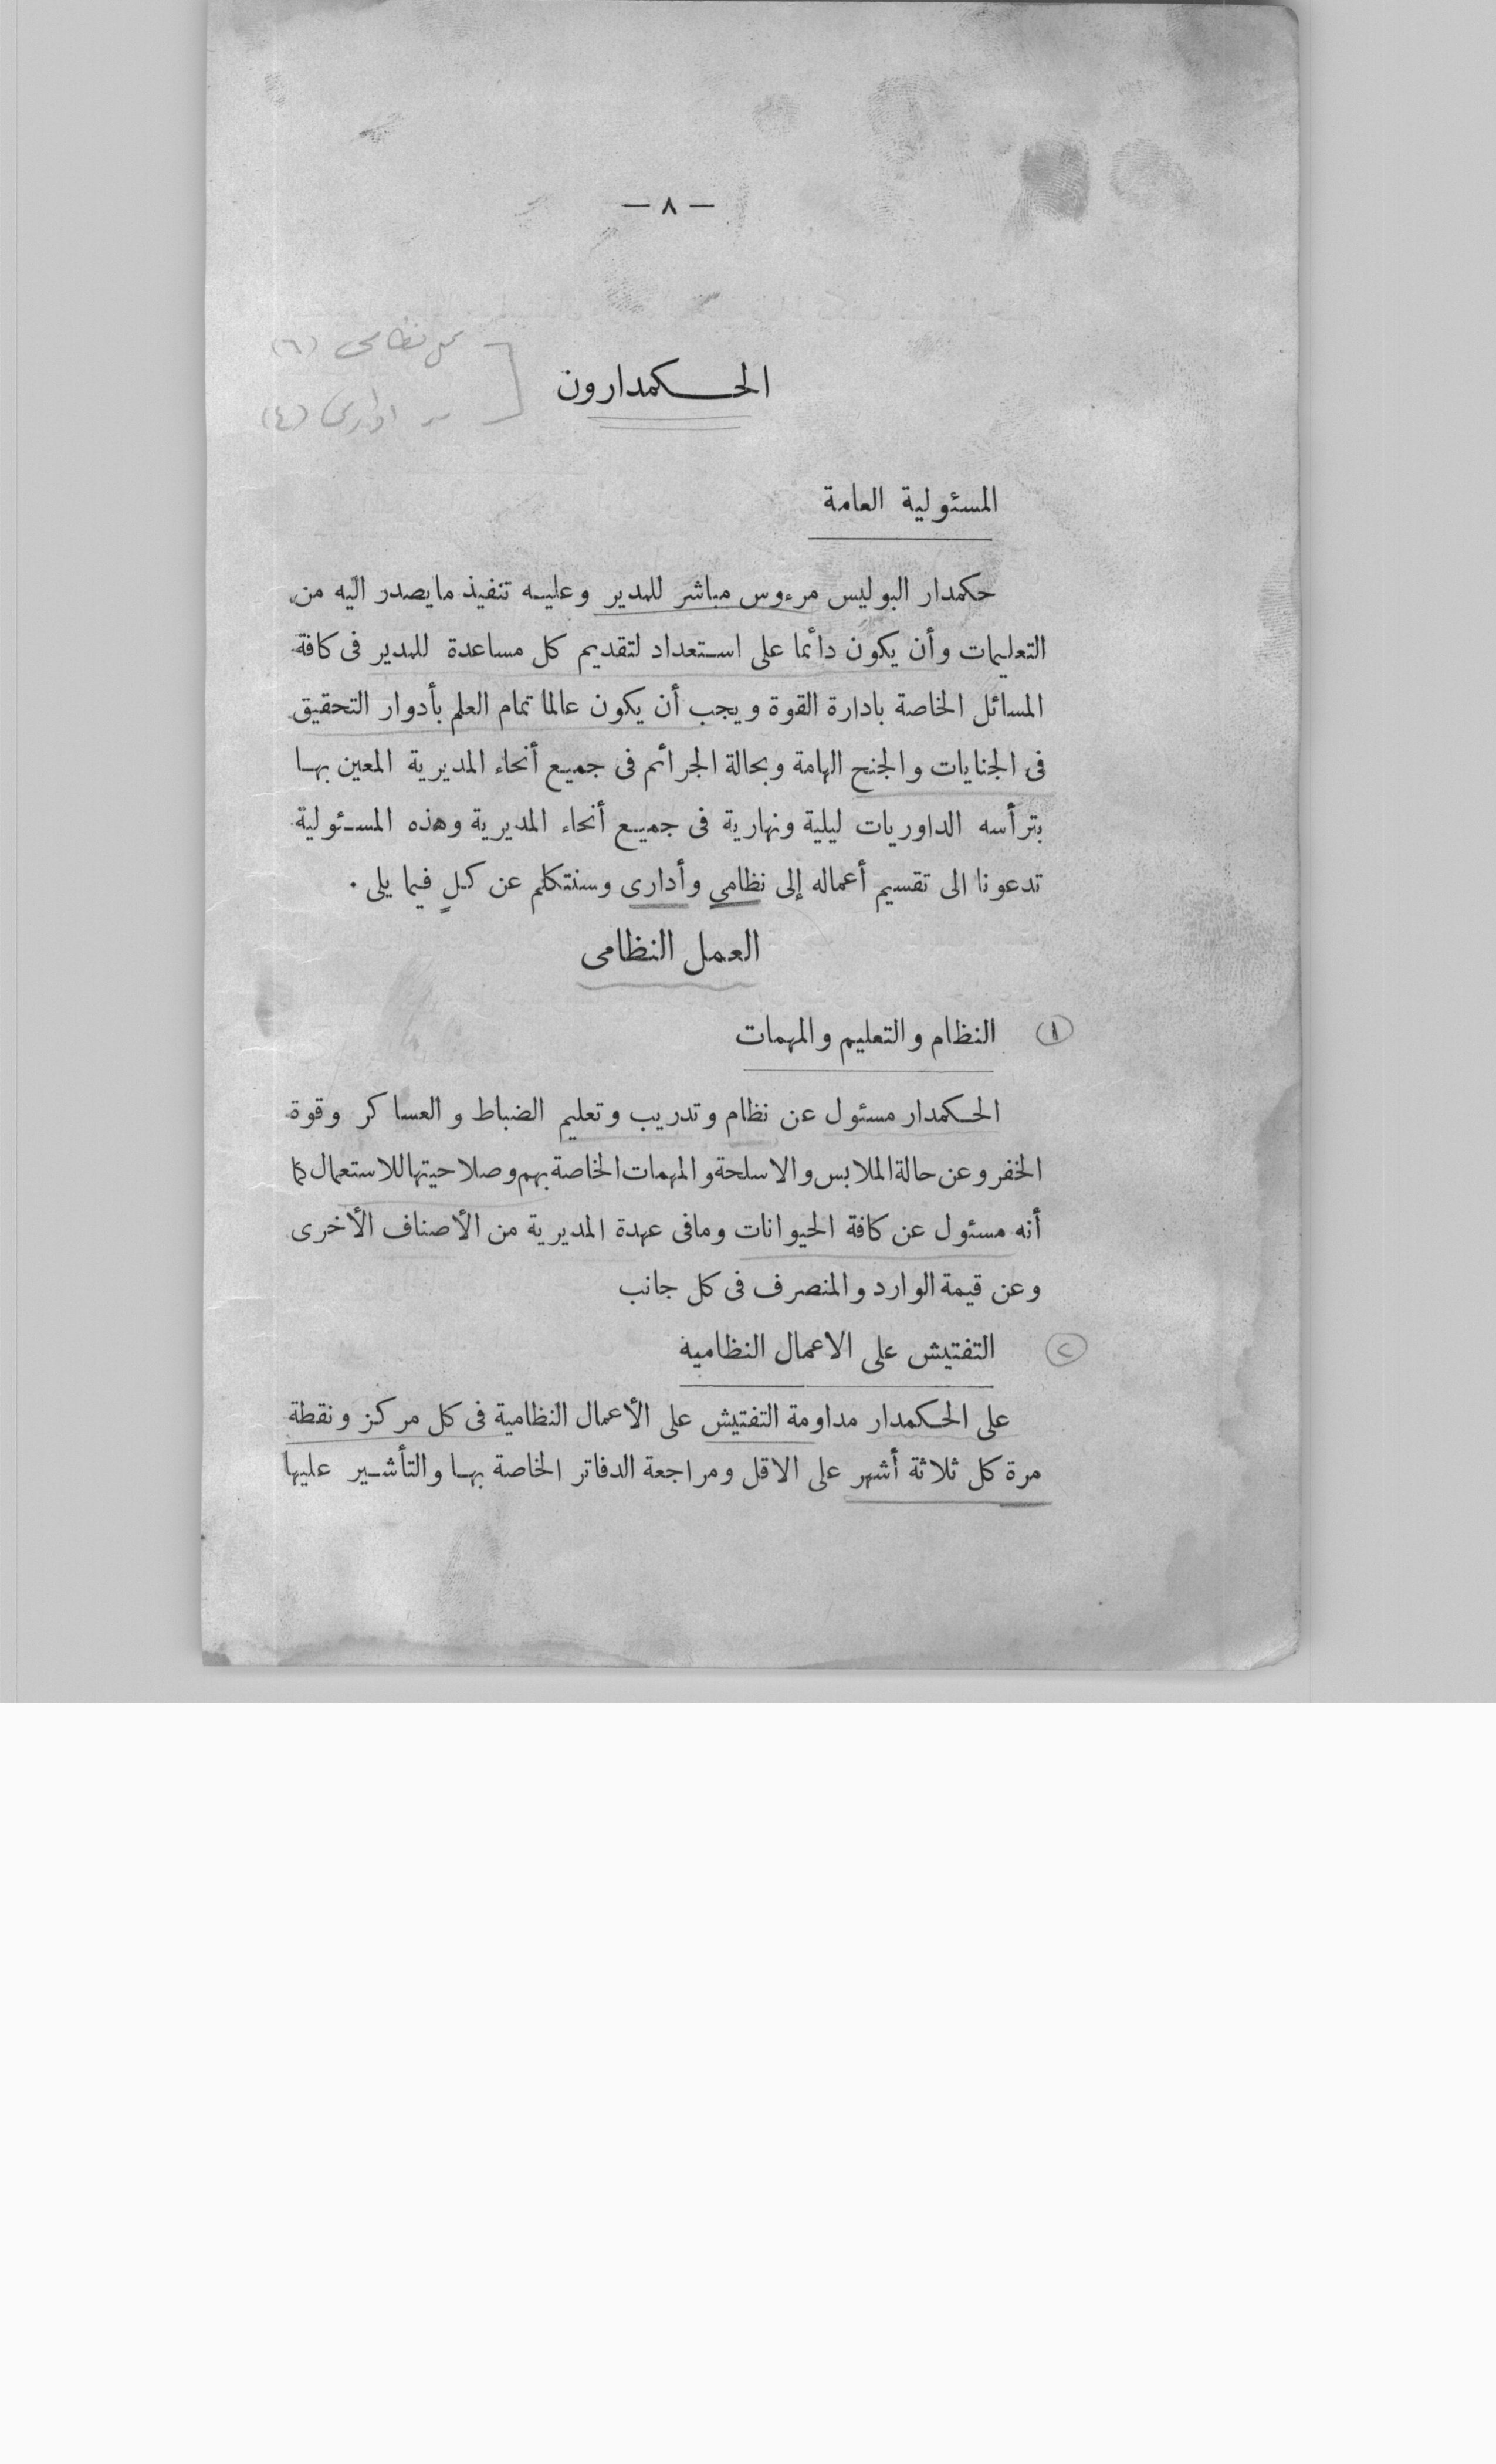 — ٨ —
عمل نظامى (٦)
الحكمدارون
ادارى (٤)
المسئولية العامة
حكمدار البوليس مرءوس مباشر للمدير وعليه تنفيذ مايصدر اليه من
التعليمات وأن يكون دائما على استعداد لتقديم كل مساعدة للمدير فى كافة
المسائل الخاصة بادارة القوة ويجب أن يكون عالما تمام العلم بأدوار التحقيق
فى الجنايات والجنح الهامة وبحالة الجرائم فى جميع أنحاء المديرية المعين بها
بترأسه الداوريات ليلية ونهارية فى جميع أنحاء المديرية وهذه المسئولية
تدعونا الى تقسيم أعماله إلى نظامي وأدارى وسنتكلم عن كلٍ فيما يلى .
العمل النظامى
١ النظام والتعليم والمهمات
الحكمدار مسئول عن نظام وتدريب وتعليم الضباط والعساكر وقوة
الخفر وعن حالة الملابس والاسلحة والمهمات الخاصة بهم وصلاحيتها للاستعمال كما
أنه مسئول عن كافة الحيوانات ومافى عهدة المديرية من الأصناف الأخرى
وعن قيمة الوارد والمنصرف فى كل جانب
٢ التفتيش على الاعمال النظاميه
على الحكمدار مداومة التفتيش على الأعمال النظامية فى كل مركز ونقطة
مرة كل ثلاثة أشهر على الاقل ومراجعة الدفاتر الخاصة بها والتأشير عليها